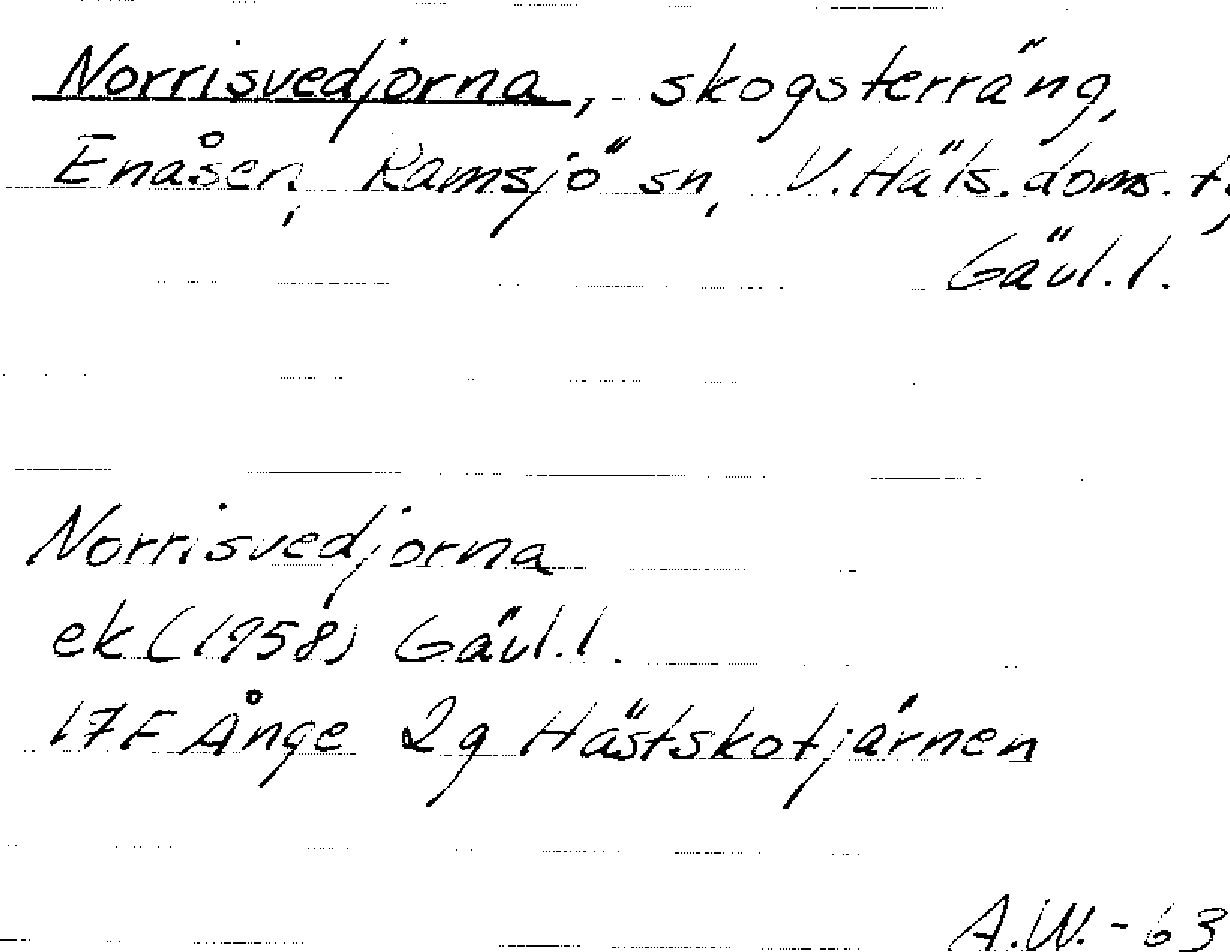 Norrisvedjorna, skogsterräng,
Enåsen, Ramsjö sn, V.Häls.doms.t.,
Gävl.l.
Norrisvedjorna
ek (1958) Gävl.l.
17F Ånge 2g Hästskotjärnen
A.W.-63